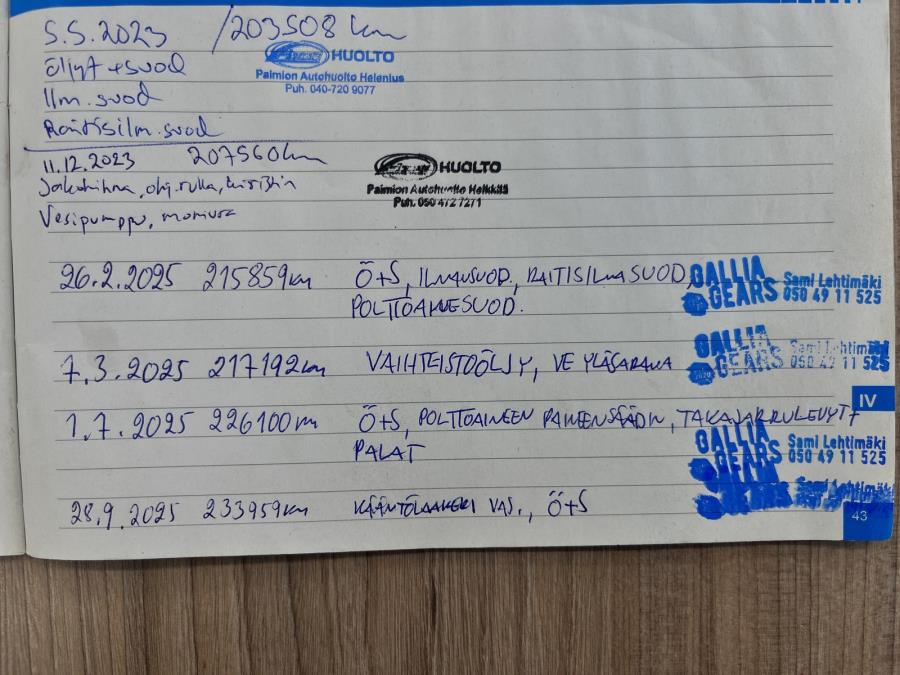 5.5.2023 /203508 km
HUOLTO
Paimion Autohuolto Helenius
Puh. 040-720 9077
Öljyt+suod
Ilm.suod
Raitisilm.suod
11.12.2023 207560km
HUOLTO
Paimion Autohuolto Heikkilä
Puh. 050 472 7271
Jakohihna, ohj.rulla, kiristin
Vesipumppu, moniura
26.2.2025 215859km Ö+S, ILMASUOD, RAITISILMASUOD,
POLTTOAINESUOD.
GALLIA GEARS
Sami Lehtimäki
050 49 11 525
7.3.2025 217192km VAIHTEISTOÖLJY, VE YLÄSARANA
GALLIA GEARS
Sami Lehtimäki
050 49 11 525
1.7.2025 226100km Ö+S, POLTTOAINEEN PAINEENSÄÄDIN, TAKAJARRULEVYT+
PALAT
GALLIA GEARS
Sami Lehtimäki
050 49 11 525
28.9.2025 233959km KÄÄNTÖLAAKERI VAS., Ö+S
Sami Lehtimäki
IV
43